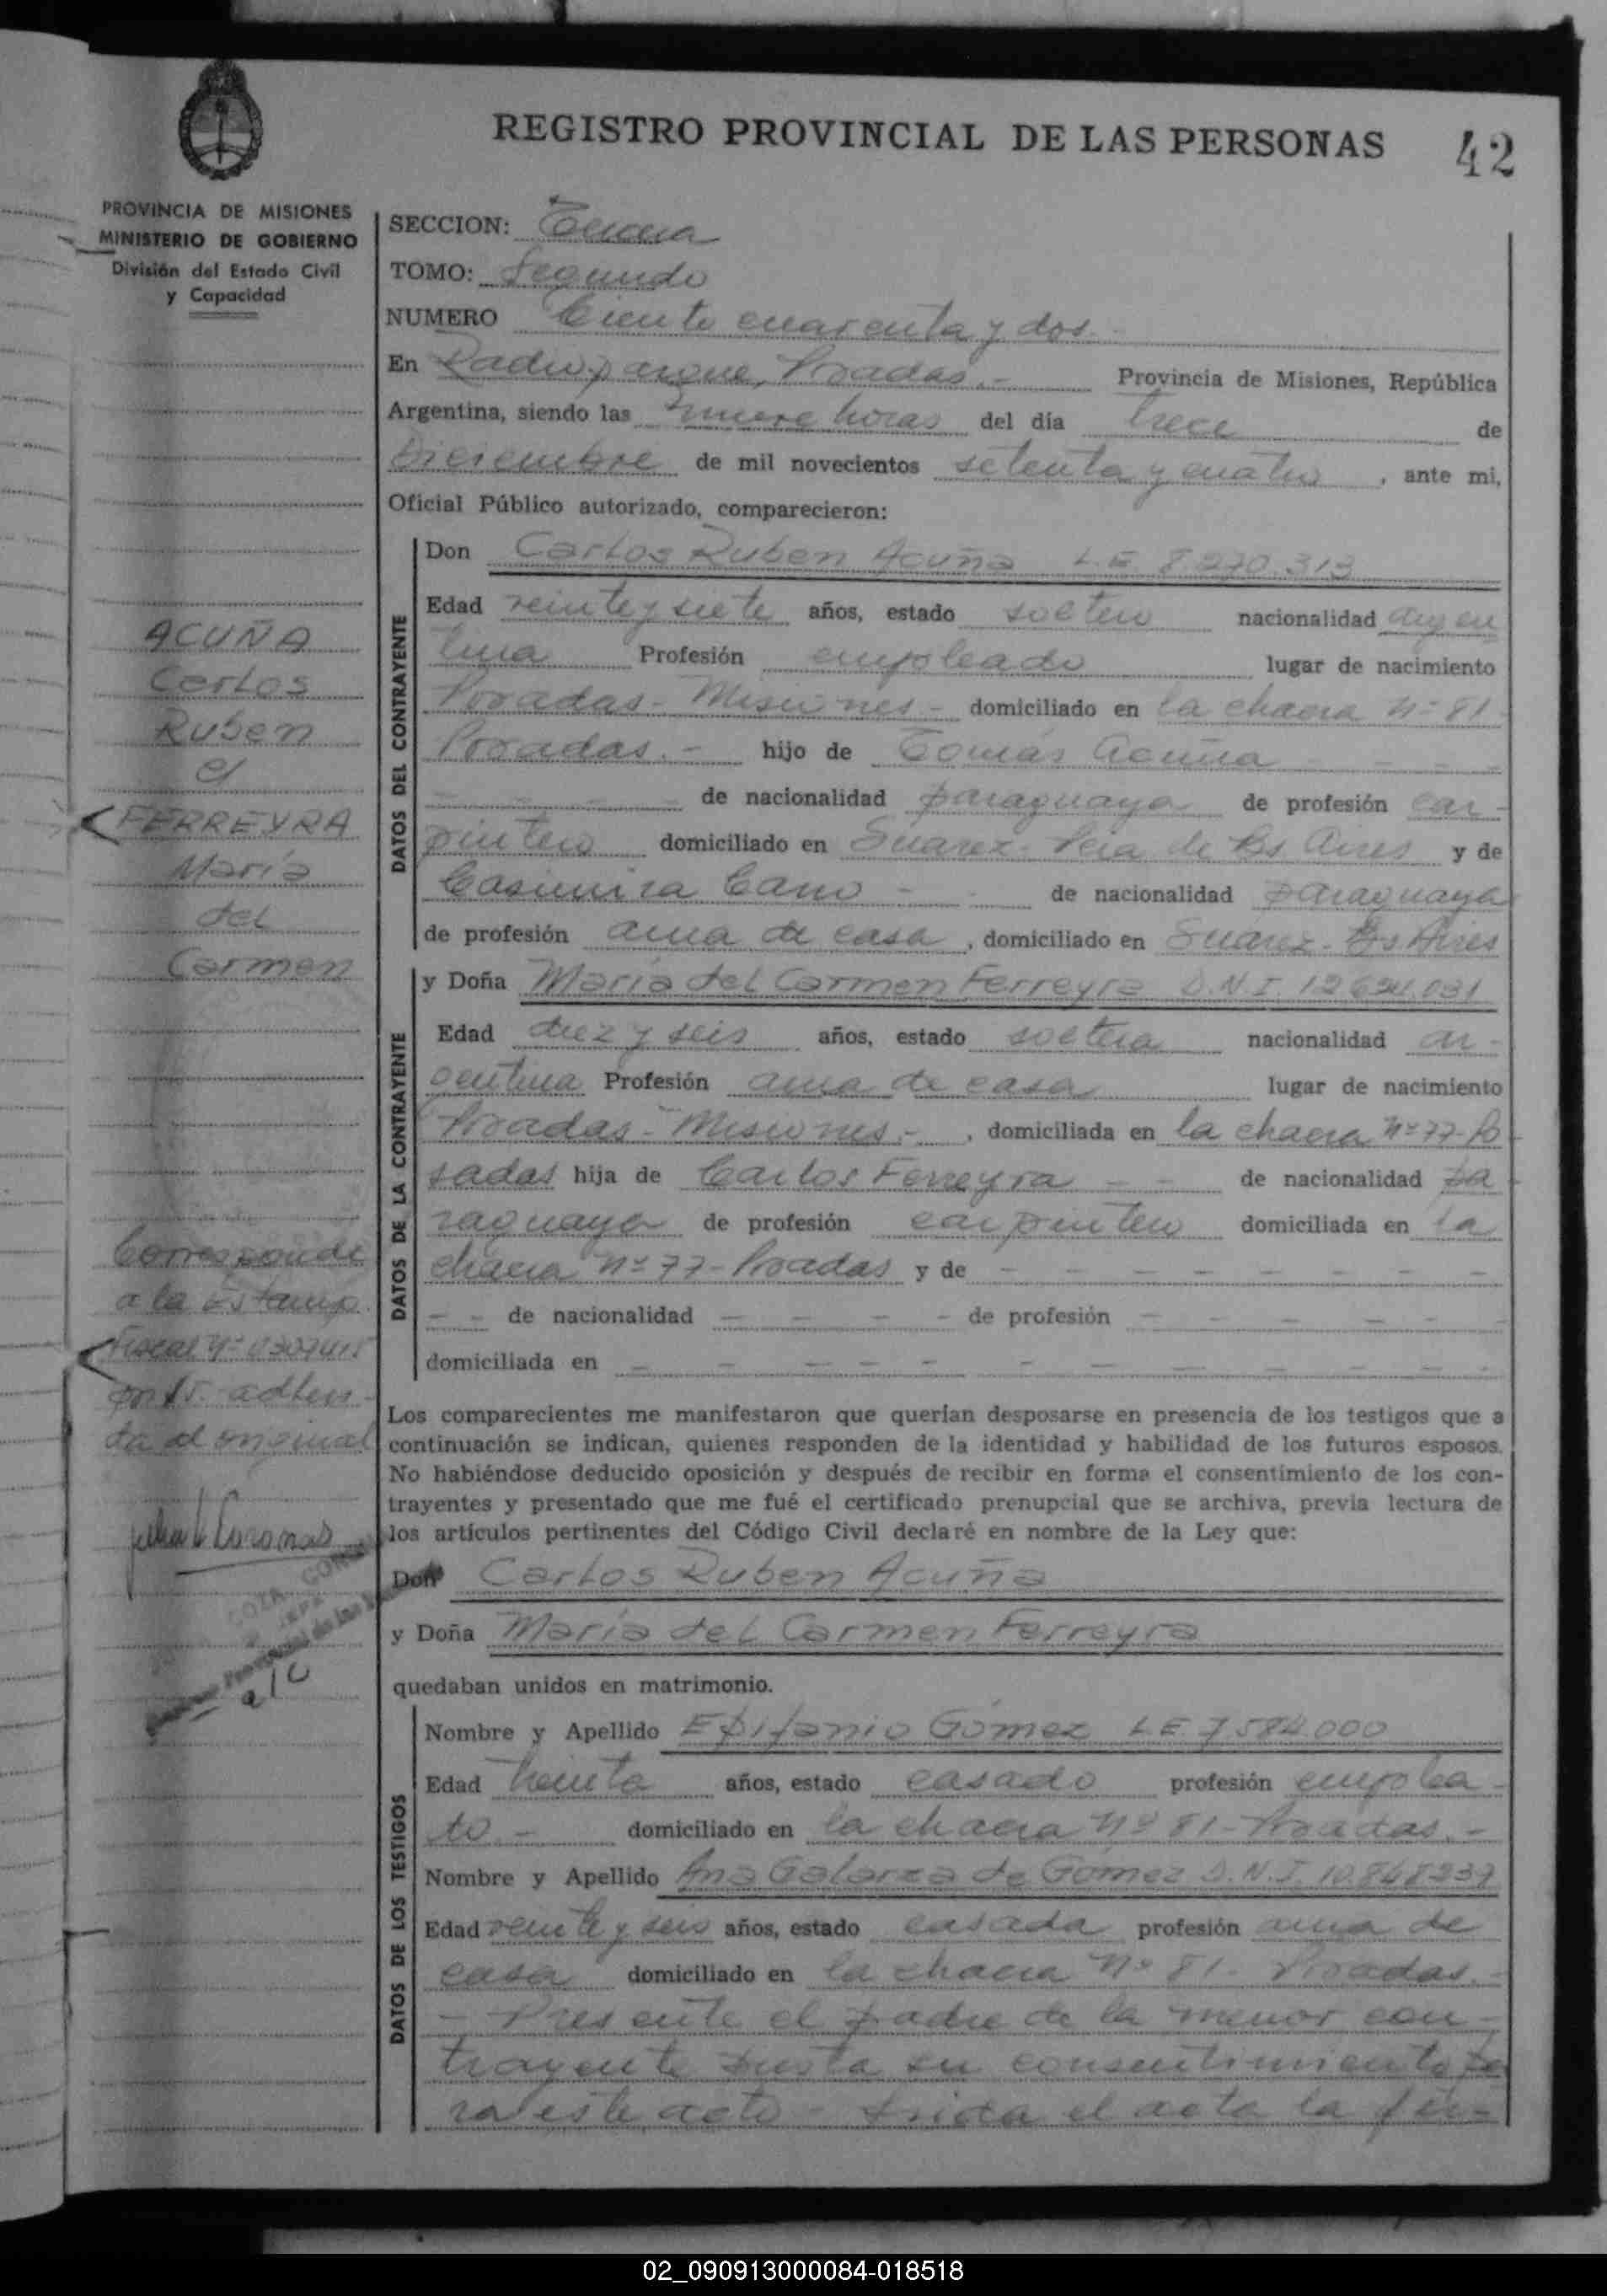 REGISTRO PROVINCIAL DE LAS PERSONAS 42
PROVINCIA DE MISIONES
MINISTERIO DE GOBIERNO
División del Estado Civil
y Capacidad
SECCION: Tercera
TOMO: Segundo
NUMERO Ciento cuarenta y dos
En Radioparque, Posadas.- Provincia de Misiones, República
Argentina, siendo las nueve horas del día trece de
Diciembre de mil novecientos setenta y cuatro, ante mi,
Oficial Público autorizado, comparecieron:
DATOS DEL CONTRAYENTE
Don Carlos Ruben Acuña L.E. 8.270.313
Edad veinte y siete años, estado soltero nacionalidad argen
tina Profesión empleado lugar de nacimiento
Posadas - Misiones - domiciliado en la chacra Nº 81
Posadas.- hijo de Tomás Acuña - - - -
- - - - - de nacionalidad paraguaya de profesión car-
pintero domiciliado en Suarez - Pcia de Bs Aires y de
Casimira Cano - - de nacionalidad paraguaya
de profesión ama de casa, domiciliado en Suarez - Bs Aires
DATOS DE LA CONTRAYENTE
y Doña María del Carmen Ferreyra D.N.I. 12.634.031
Edad diez y seis años, estado soltera nacionalidad ar-
gentina Profesión ama de casa lugar de nacimiento
Posadas - Misiones.-, domiciliada en la chacra Nº 77 - Po
sadas hija de Carlos Ferreyra - - de nacionalidad pa
raguaya de profesión carpintero domiciliada en la
chacra Nº 77 - Posadas y de - - - - - - -
- - de nacionalidad - - - - de profesión - - - - - -
domiciliada en - - - - - - - - - - -
Los comparecientes me manifestaron que querían desposarse en presencia de los testigos que a
continuación se indican, quienes responden de la identidad y habilidad de los futuros esposos.
No habiéndose deducido oposición y después de recibir en forma el consentimiento de los con-
trayentes y presentado que me fué el certificado prenupcial que se archiva, previa lectura de
los artículos pertinentes del Código Civil declaré en nombre de la Ley que:
Don Carlos Ruben Acuña
y Doña María del Carmen Ferreyra
quedaban unidos en matrimonio.
DATOS DE LOS TESTIGOS
Nombre y Apellido Epifanio Gómez L.E. 7.584.000
Edad treinta años, estado casado profesión emplea-
do.- domiciliado en la chacra Nº 81 - Posadas.-
Nombre y Apellido Ana Galarza de Gómez D.N.I. 10.848.239
Edad veinte y seis años, estado casada profesión ama de
casa domiciliado en la chacra Nº 81 - Posadas.-
- Presente el padre de la menor con-
trayente presta su consentimiento pa
ra este acto - leida el acta la fir-
ACUÑA
Carlos
Ruben
c/
FERREYRA
María
del
Carmen
Corresponde
a la Estamp.
Fiscal Nº 0307415
adheri
da al original
Coronas
02_090913000084-018518